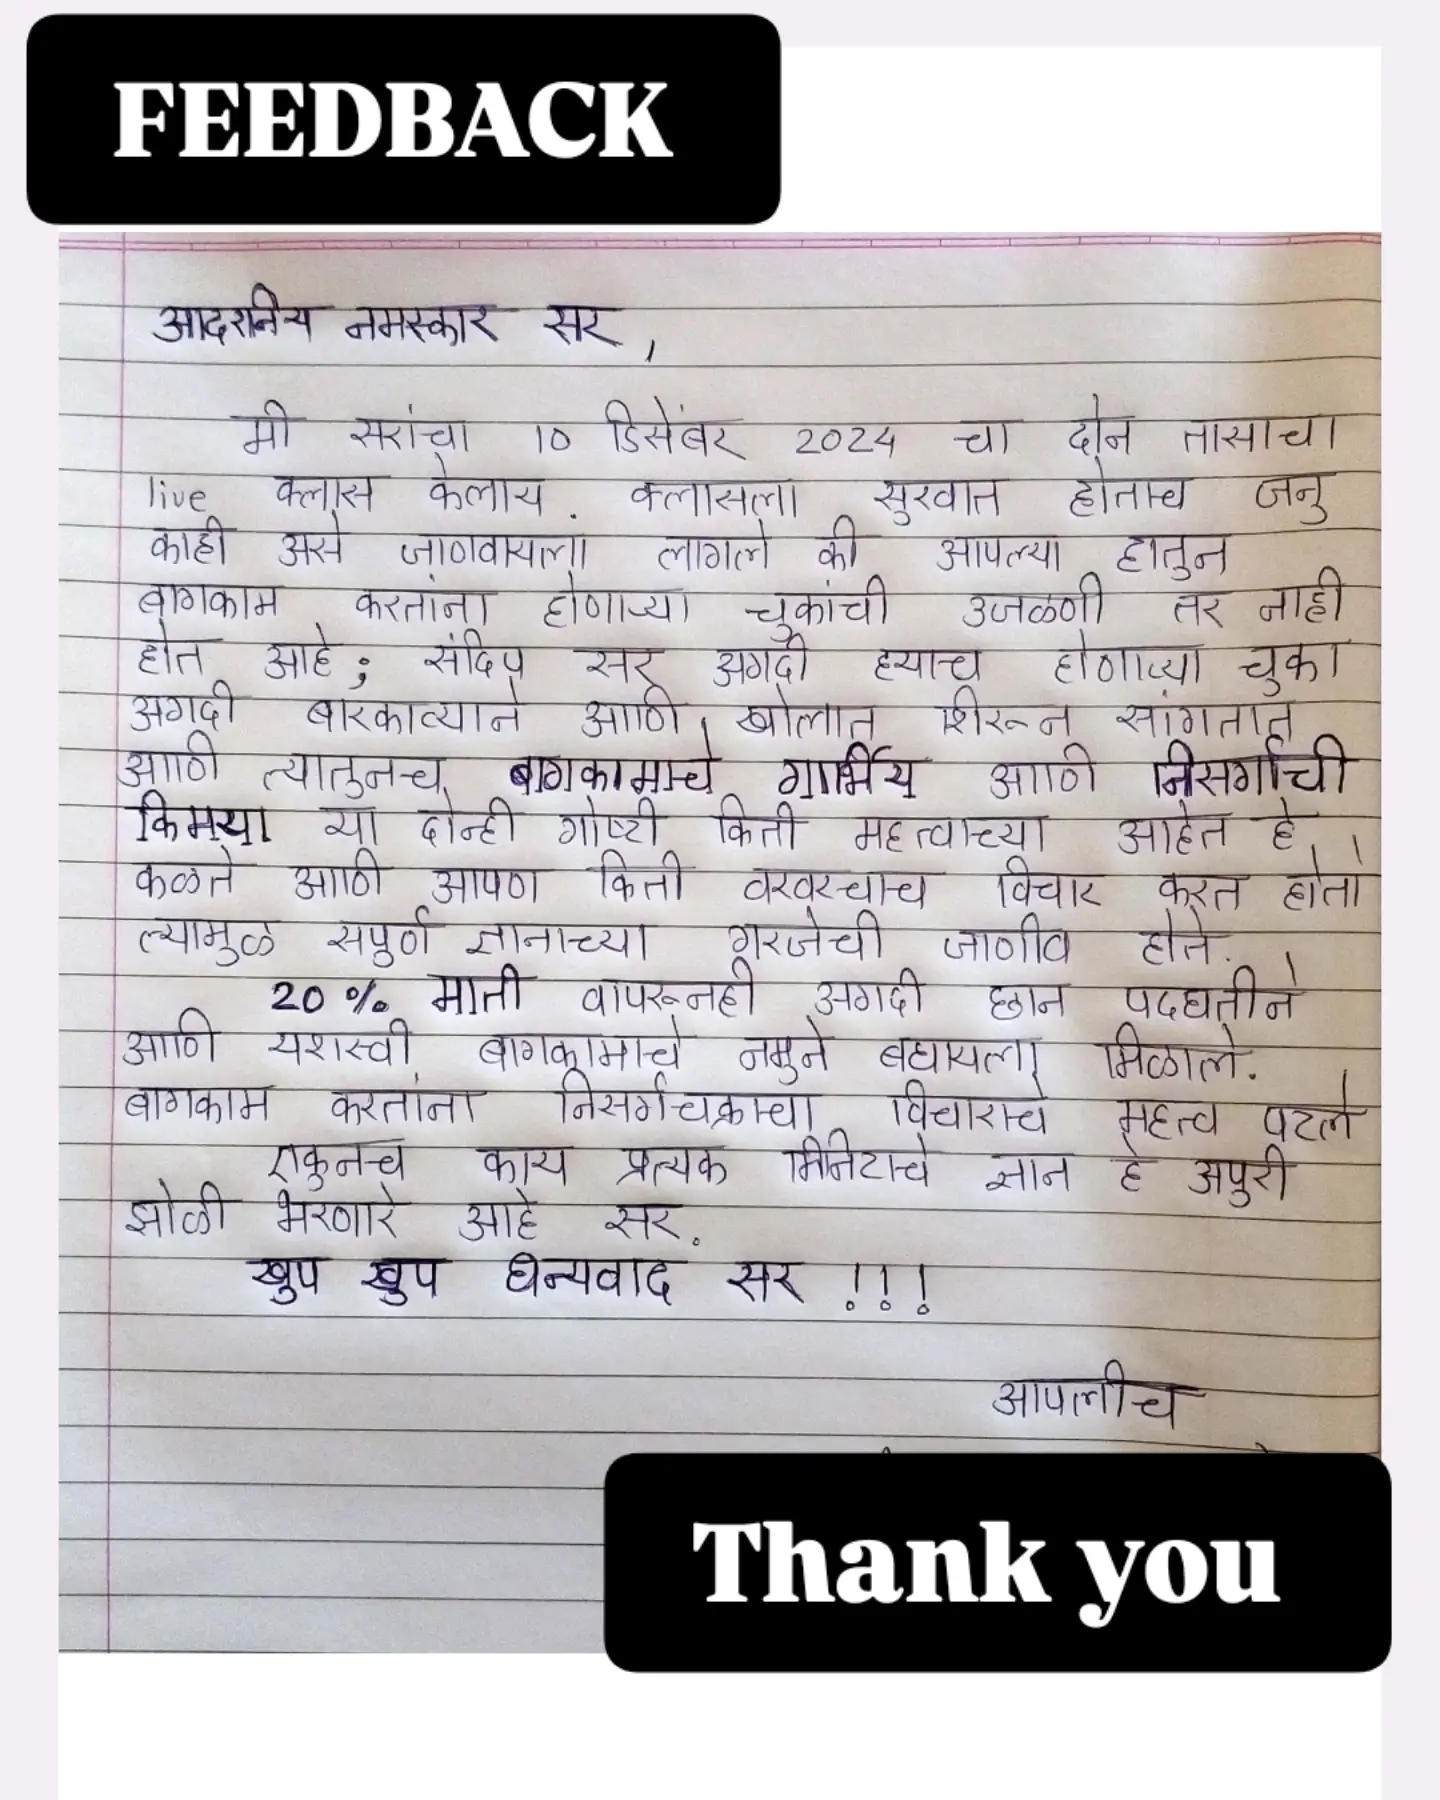 FEEDBACK
आदरानिय नमस्कार सर,
मी सरांचा 10 डिसेंबर 2024 चा दोन तासाचा
live क्लास केलाय. क्लासला सुरवात होताच जनु
काही असे जाणवायला लागले की आपल्या हातुन
बागकाम करतांना होणाऱ्या चुकांची उजळणी तर नाही
होत आहे; संदिप सर अगदी ह्याच होणाऱ्या चुका
अगदी बारकाव्याने आणि खोलात शिरून सांगतात
आणि त्यातुनच बागकामाचे गार्भिय आणि निसर्गाची
किमया या दोन्ही गोष्टी किती महत्वाच्या आहेत हे
कळते आणि आपण किती वरवरचाच विचार करत होतो
त्यामुळे सपुर्ण ज्ञानाच्या गरजेची जाणीव होते.
20% माती वापरूनही अगदी छान पदधतीने
आणि यशस्वी बागकामाचे नमुने बघायला मिळाले.
बागकाम करतांना निसर्गचक्राचा विचाराचे महत्व पटले
एकुनच काय प्रत्यक मिनिटाचे ज्ञान हे अपुरी
झोळी भरणारे आहे सर.
खुप खुप धन्यवाद सर !!!
आपलीच
Thank you